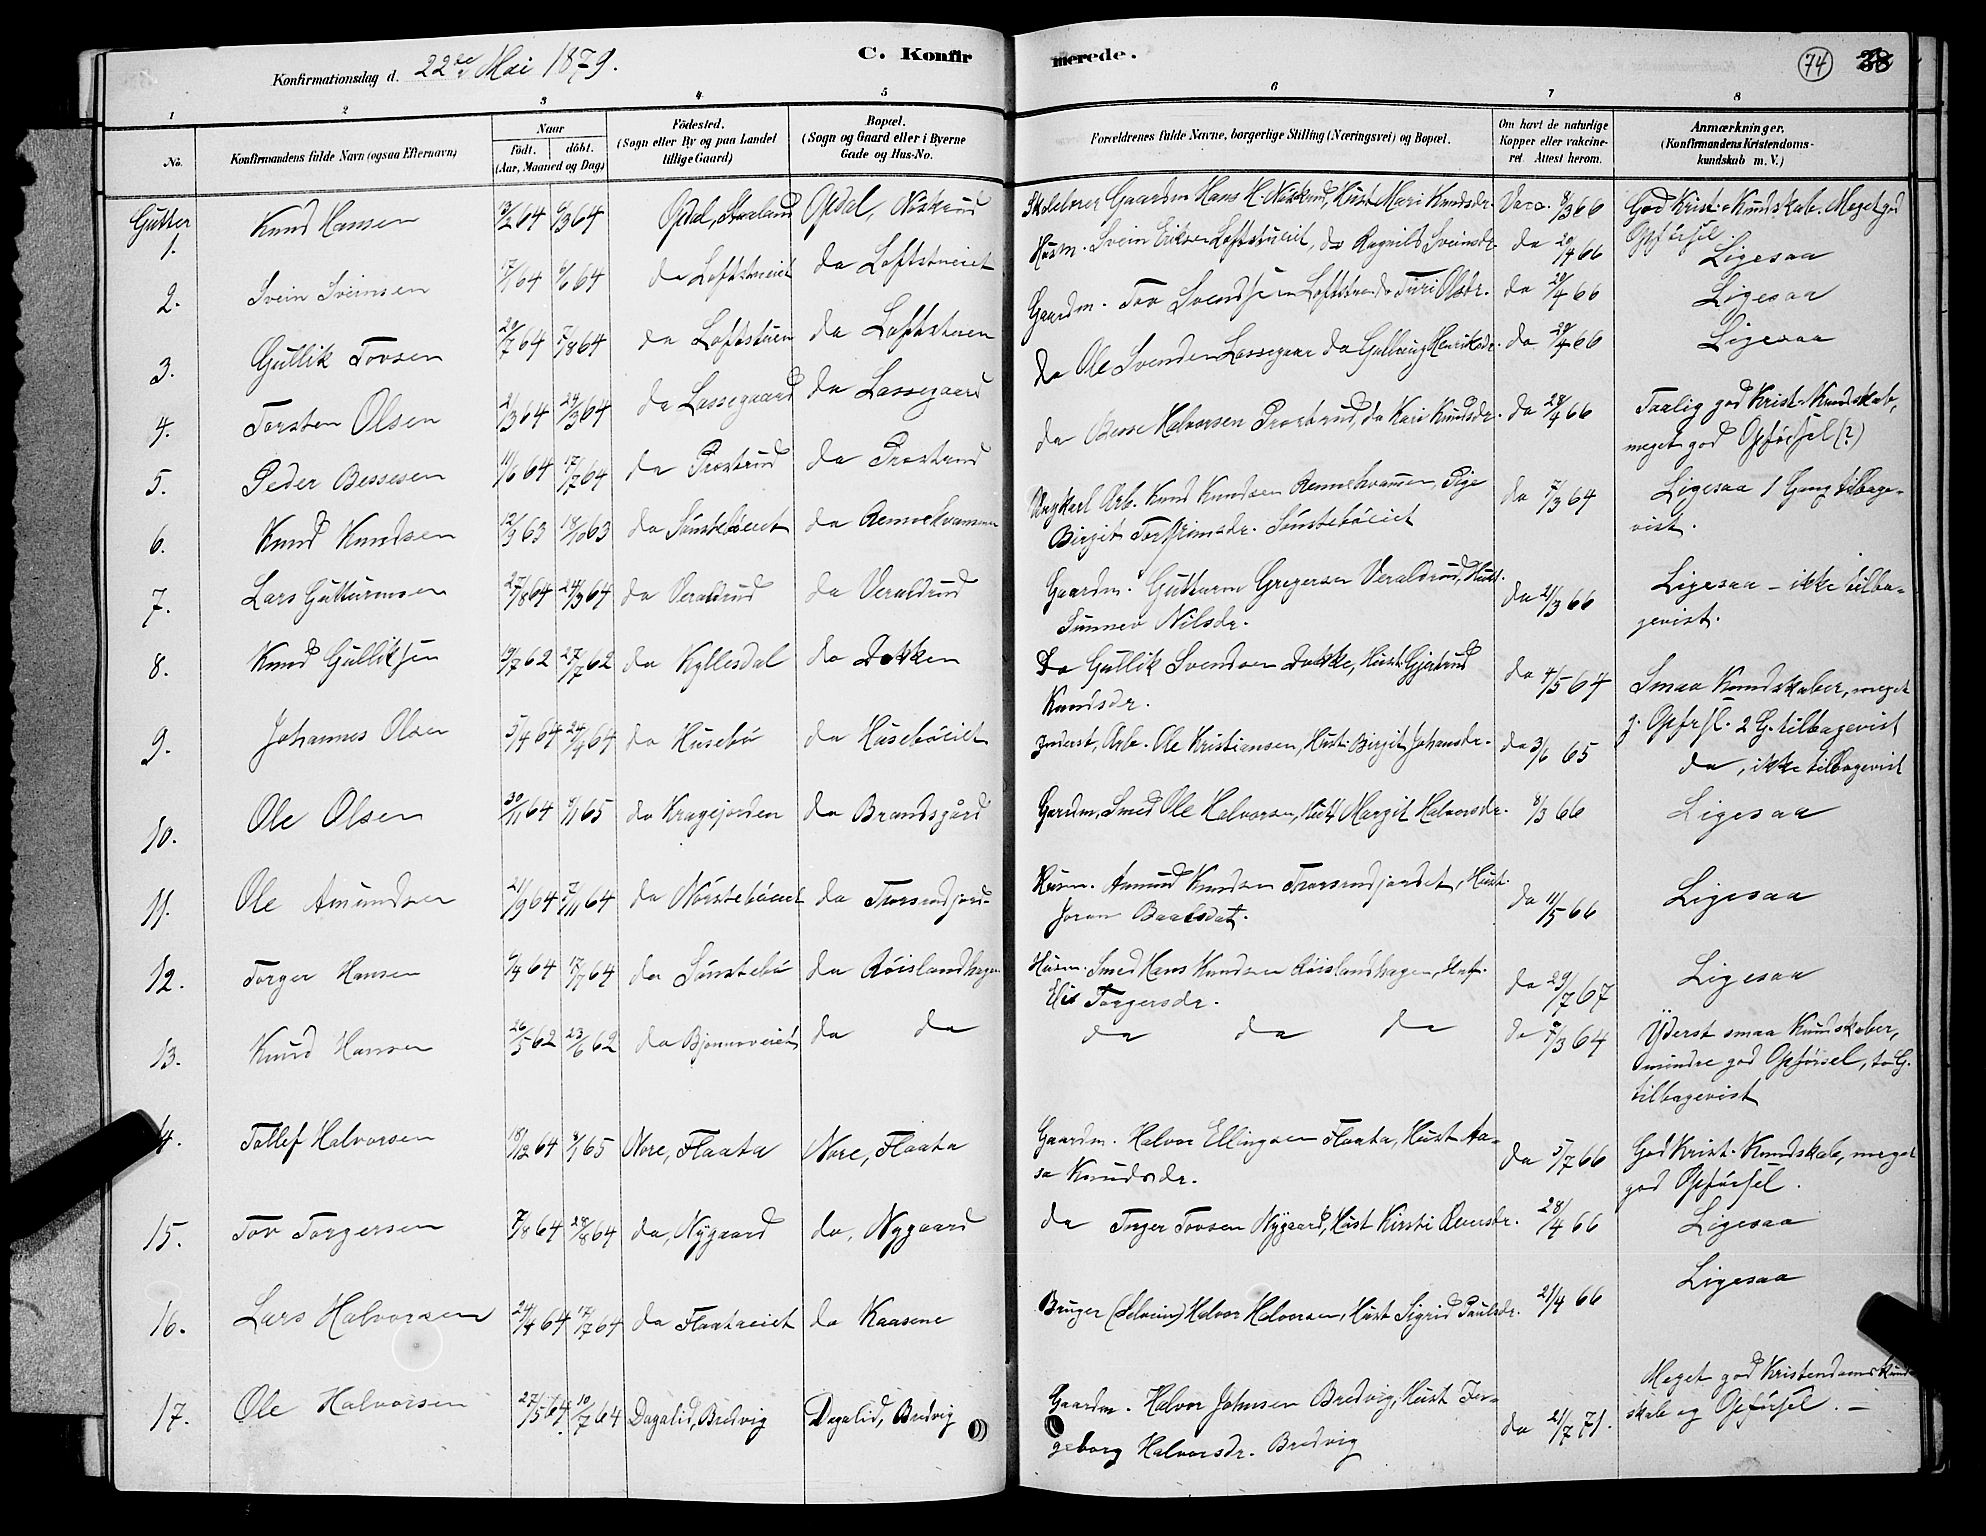 Konfirmationsdag d. 22de Mai 1879.
C. Konfirmerede.
74
38
1 2 3 4 5 6 7 8
No.
Konfirmandens fulde Navn (ogsaa Efternavn)
Naar
født. døbt.
(Aar, Maaned og Dag)
Fødested.
(Sogn eller By og paa Landet
tillige Gaard)
Bopæl.
(Sogn og Gaard eller i Byerne
Gade og Hus-No.
Forældrenes fulde Navne, borgerlige Stilling (Næringsvei) og Bopæl.
Om havt de naturlige
Kopper eller vakcine-
ret. Attest herom.
Anmærkninger.
(Konfirmandens Kristendoms-
kundskab m. V.)
Gutter
1. Knud Hansen Opdal, Opdal, Nøskrud Skolelærer Gaardm Hans H. Nøskrud, Hust. Mari Knudsdr. Vacc. 8/3 66 God Krist. Kundskab. Meget god
Opførsel
2. Svein Sveinsen 6/6 64 da Loftstueiet da Loftstueiet Husm. Svein Eriksen Loftstueiet, da Ragnild Sveinsdr. da 20/4 66 Ligesaa
3. Gullik Tovsen 20/7 64 7/8 64 da Loftstuen da Loftstuen Gaardm. Tov Svendsen Loftstuen da Turi Olsdr. da 20/4 66 Ligesaa
4. Torsten Olsen 2/3 64 24/3 64 da Lassegaard da Lassegaard da Ole Svendsen Lassegaar da Gullaug Henriksdr. da 20/4 66 Ligesaa
5. Peder Bessesen 11/6 64 17/7 64 da Prostrud da Prostrud da Besse Halvorsen Prostrud, da Kari Knudsdr. da 28/4 66 Taalig god Krist. Kundskab,
meget god Opførsel (?)
6. Knud Knudsen 12/9 63 18/10 63 da Sønstebøeiet da Rennehvammen Ungkarl Arb. Knud Knudsen Rennehvammen, Pige
Birgit Torstensdr. Sønstebøeiet da 7/3 64 Ligesaa 1 Gang tilbage-
vist.
7. Lars Guttormsen 24/3 64 da Veraldrud da Veraldrud Gaardm. Guttorm Gregersen Veraldrud, Hust.
Sunnev Nilsdr. da 2/3 66 Ligesaa – ikke tilba-
gevist.
8. Knud Gulliksen 9/7 62 27/7 62 da Kyllesdal da Dokken Da Gullik Svendsen Dokke, Hust. Gjertrud
Knudsdr. da 4/5 64 Smaa Kundskaber, meget
g. Opfrsl. 2 G. tilbagevist
9. Johannes Olsen 5/4 64 24/4 64 da Husebø da Husebøeiet Inderst, Arb. Ole Kristiansen, Hust. Birgit Johansdr. da 3/6 65 da, ikke tilbagevist
10. Ole Olsen 30/11 64 8/1 65 da Kragejorden da Brandsgård Gardm, Smed Ole Halvorsen, Hust Margit Halvorsdr. 8/3 66 Ligesaa
11. Ole Amundsen 21/9 64 7/11 64 da Nørstebøeiet da Traasrudjord- Husm. Amund Knudsen Traasrudjordet, Hust.
Joran Baalsdat. da 11/5 66 Ligesaa
12. Torger Hansen 6/4 64 17/7 64 da Sønstebø da Røislandhagen Husm. Smed Hans Knudsen Røislandhagen, Hust.
Elie Torgersdr. da 29/7 67 Ligesaa
13. Knud Hansen 26/5 62 23/6 62 da Bjønnoveiet da da da da da da 8/3 64 Yderst smaa Kundskaber,
mindre god Opførsel, to G.
tilbagevist
14. Tollef Halvorsen 18/12 64 8/1 65 Nore, Flaata Nore, Flaata Gaardm. Halvor Ellingsen Flaata, Hust Aa-
se Knudsdr. da 5/7 66 God Krist. Kundskab, meget
god Opførsel.
15. Tov Torgersen 7/8 64 28/8 64 da, Nygaard da, Nygaard da Torger Tovsen Nygaard, Hust Kirsti Reiersdr. 28/4 66 Ligesaa
16. Lars Halvorsen 24/4 64 17/7 64 da Flaataeiet da Kaasene Bruger (Selveier) Halvor Halvorsen, Hust Sigrid Paulsdr. 21/4 66 Ligesaa
17. Ole Halvorsen 27/5 64 10/7 64 Dagalid, Bredvig Dagalid, Bredvig Gaardm. Halvor Johnsen Bredvig, Hust Jor-
geborg Halvorsdr. Bredvig da 21/7 71. Meget god Kristendomskund-
skab og Opførsel. –